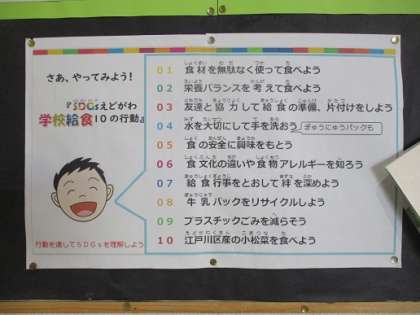 さあ、やってみよう！
『SDGsえどがわ
学校給食10の行動』
01 食材を無駄なく使って食べよう
02 栄養バランスを考えて食べよう
03 友達と協力して給食の準備、片付けをしよう
04 水を大切にして手を洗おう
ぎゅうにゅうパックも
05 食の安全に興味をもとう
06 食文化の違いや食物アレルギーを知ろう
07 給食行事をとおして絆を深めよう
08 牛乳パックをリサイクルしよう
09 プラスチックごみを減らそう
10 江戸川区産の小松菜を食べよう
行動を通してSDGsを理解しよう